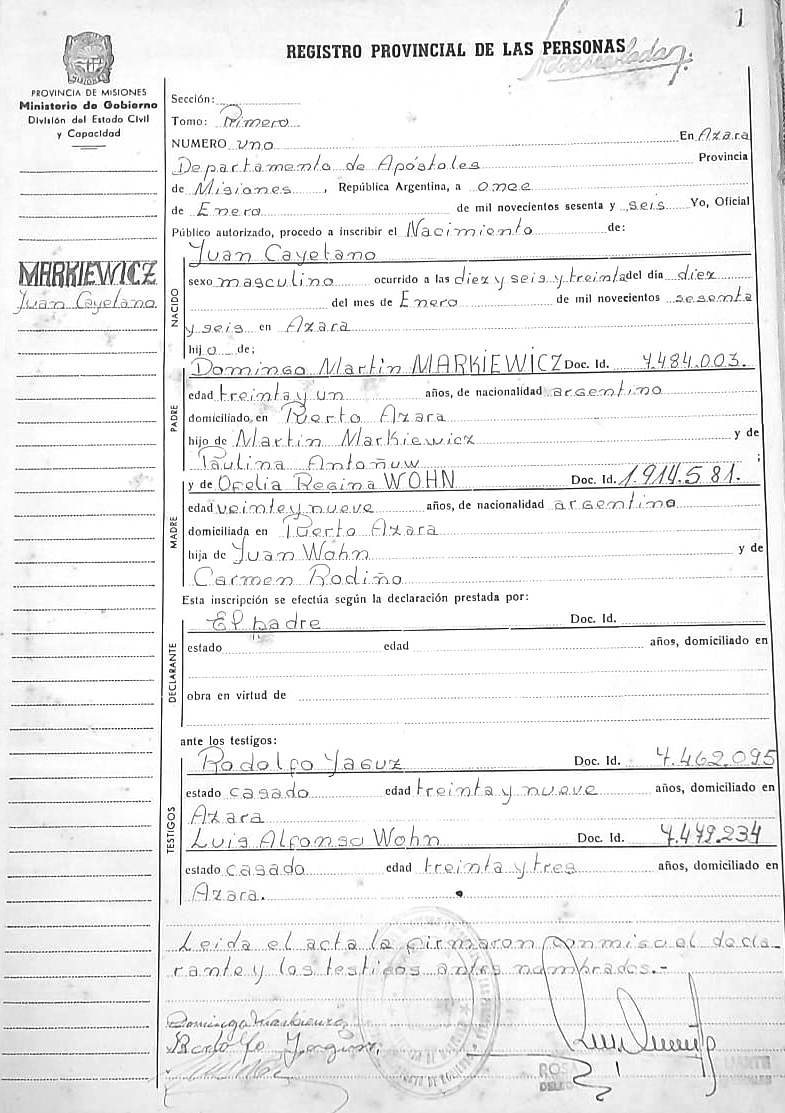 1
REGISTRO PROVINCIAL DE LAS PERSONAS
PROVINCIA DE MISIONES
Ministerio de Gobierno
División del Estado Civil
y Capacidad
MARKIEWICZ
Juan Cayetano
Sección:
Tomo: Primero
NUMERO uno En Azara
Departamento de Apóstoles Provincia
de Misiones, República Argentina, a once
de Enero de mil novecientos sesenta y seis Yo, Oficial
Público autorizado, procedo a inscribir el Nacimiento de:
Juan Cayetano
NACIDO
sexo masculino ocurrido a las diez y seis y treinta del día diez
del mes de Enero de mil novecientos sesenta
y seis en Azara
hijo de:
Domingo Martin MARKIEWICZ Doc. Id. 7.484.003.
PADRE
edad treinta y un años, de nacionalidad argentino
domiciliado en Puerto Azara
hijo de Martin Markiewicz y de
Paulina Antoñuw ;
y de Ofelia Regina WOHN Doc. Id. 1.914.581.
MADRE
edad veinte y nueve años, de nacionalidad argentina
domiciliada en Puerto Azara
hija de Juan Wohn y de
Carmen Rodiño
Esta inscripción se efectúa según la declaración prestada por:
El padre Doc. Id.
DECLARANTE
estado edad años, domiciliado en
obra en virtud de
ante los testigos:
Rodolfo Yaguz Doc. Id. 7.462.095
TESTIGOS
estado casado edad treinta y nueve años, domiciliado en
Azara
Luis Alfonso Wohn Doc. Id. 7.479.234
estado casado edad treinta y tres años, domiciliado en
Azara.
Leida el acta la firmaron conmigo el decla-
rante y los testigos antes nombrados.-
Domingo Markiewicz